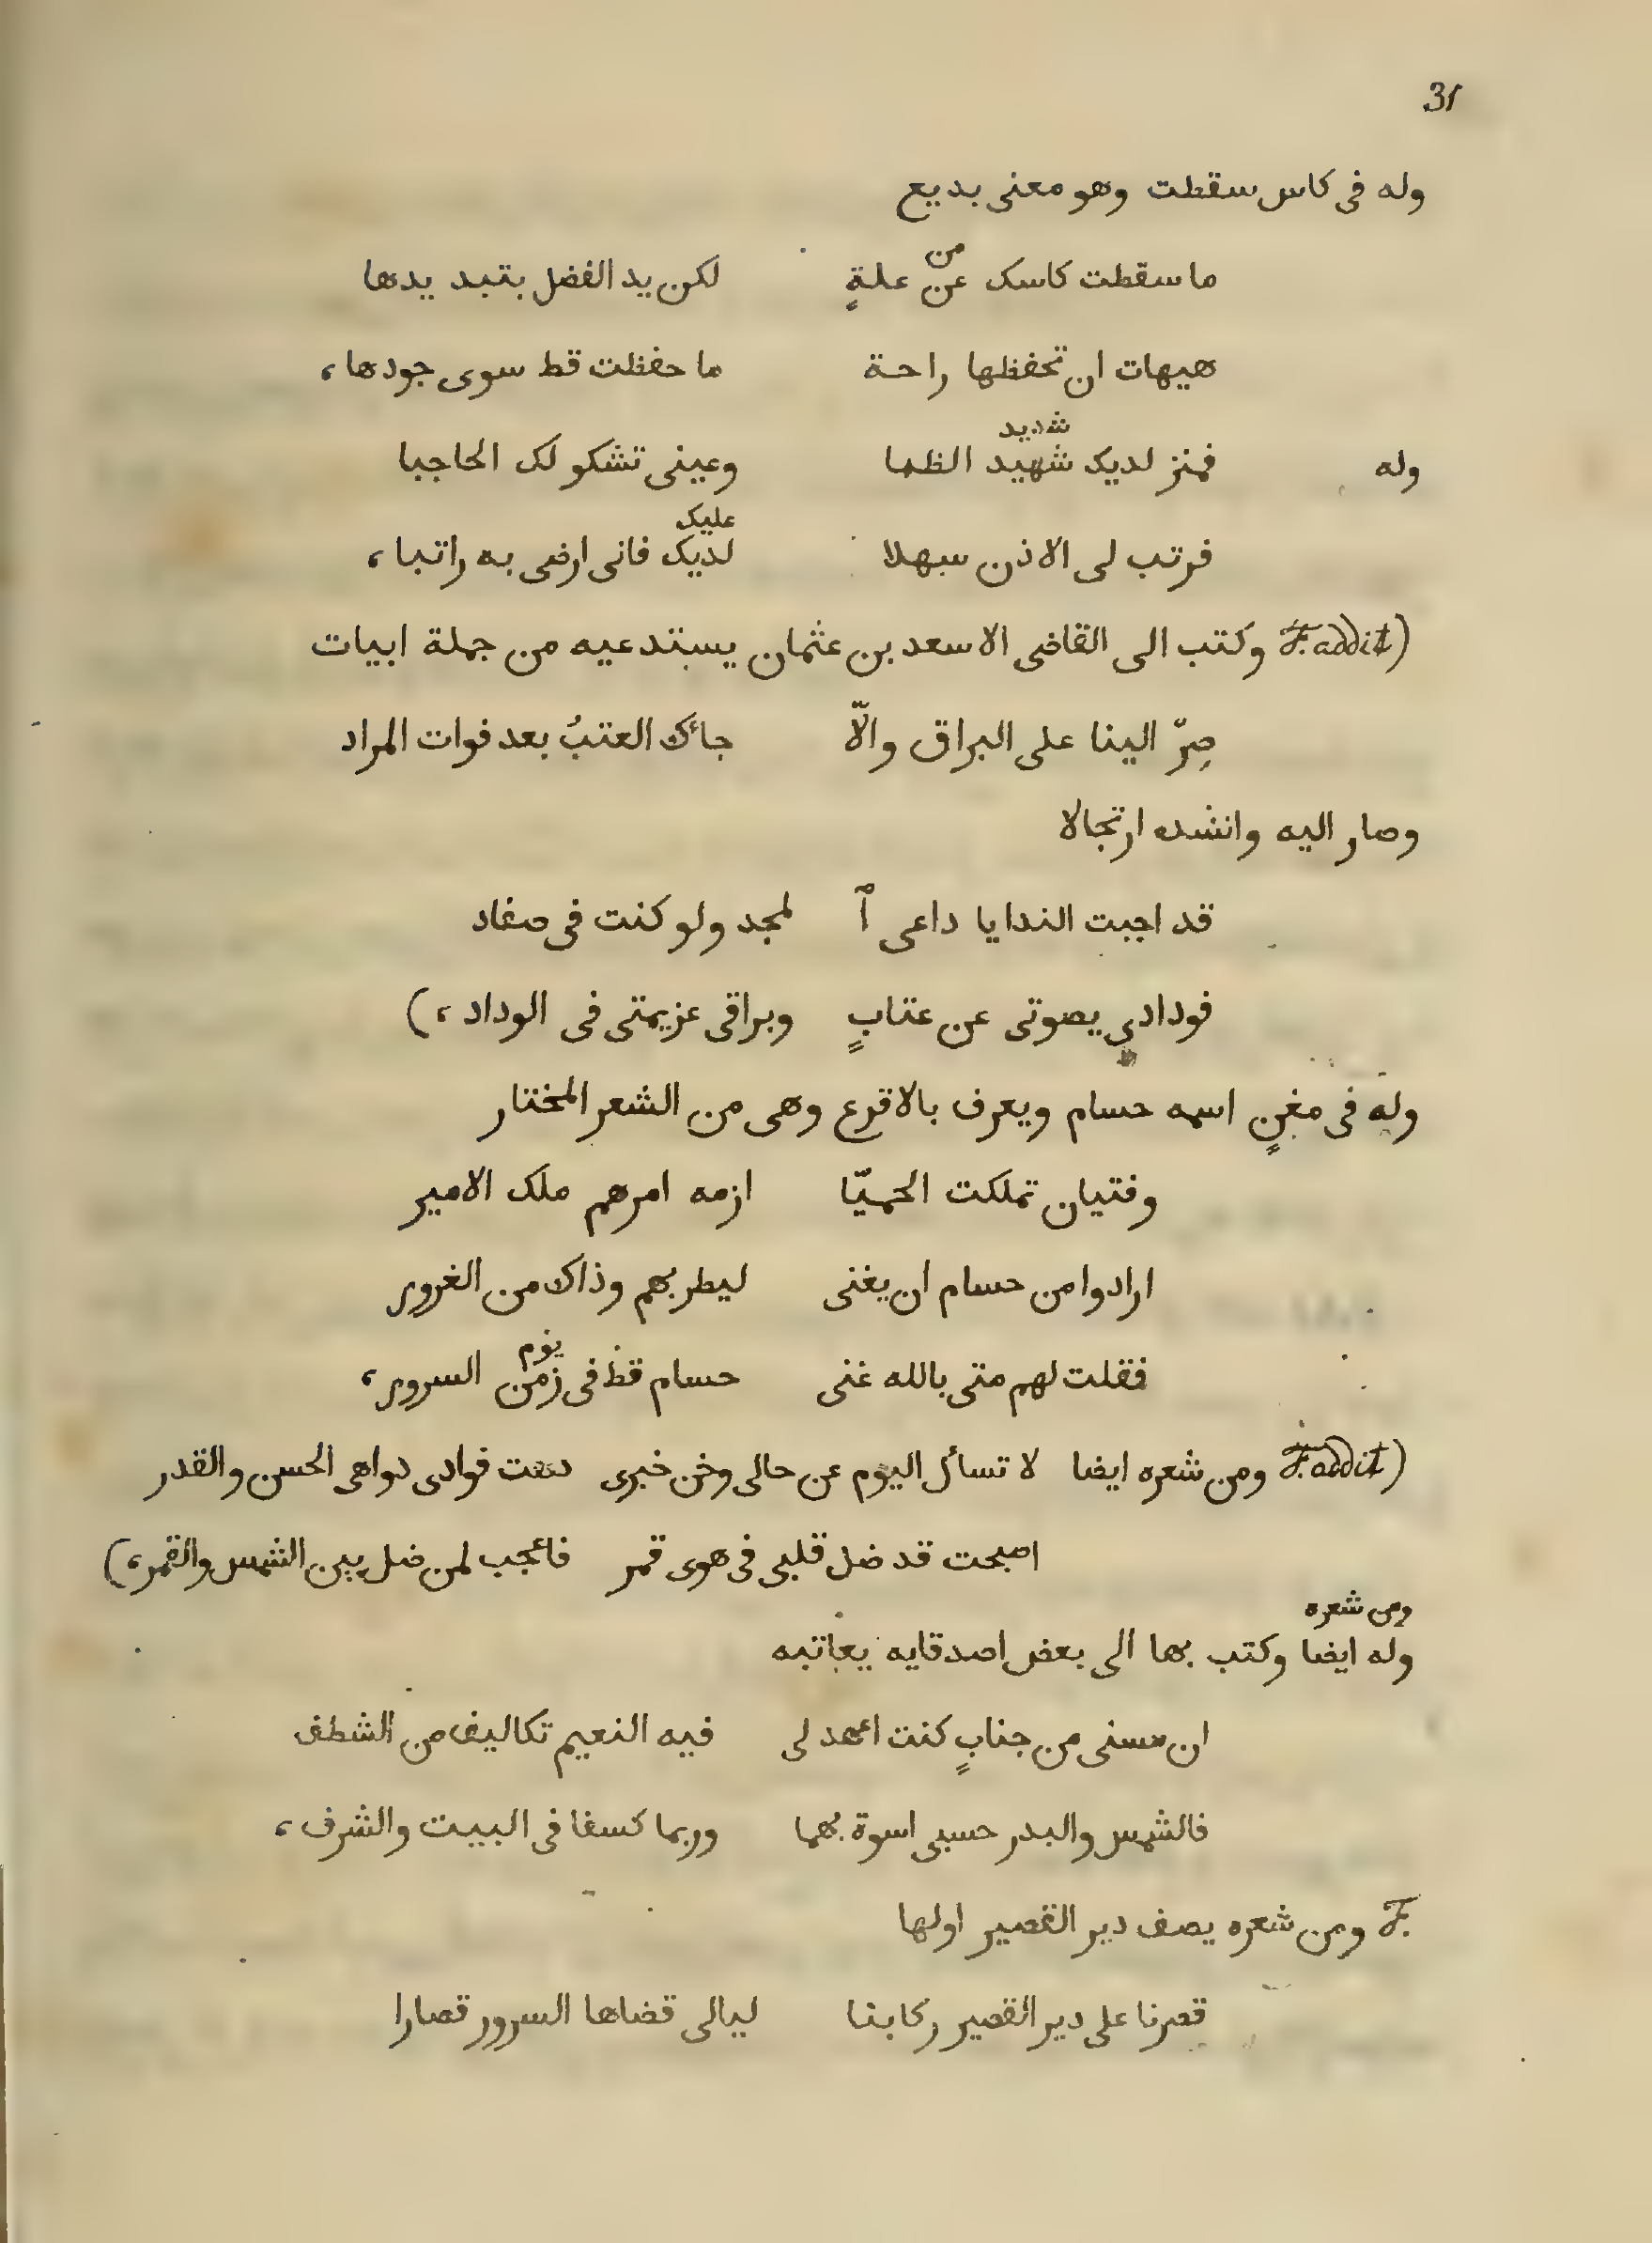 31
وله فى كاس سقطت وهو معنى بديع
من
ما سقطت كاسك عن علةٍ لكن يد الفضل بتبد يدها
هيهات ان تحفظها راحة ما حفظت قط سوى جودها،
شديد
وله فمنز لديك شهيد الظما وعينى تشكو لك الحاجبا
عليك
فرتب لى الاذن سهلا لديك فانى ارضى به راتبا،
(F. addit وكتب الى القاضى الاسعد بن عثمان يستدعيه من جملة ابيات
صِرّ الينا على البراق والّا جائك العتبُ بعد فوات المراد
وصار اليه وانشده ارتجالا
قد اجبت الندا يا داعى آ لمجد ولو كنت فى صفاد
فودادى يصوتى عن عتابٍ وبراقى عزيمتى فى الوداد،)
وله فى مغنٍ اسمه حسام ويعرف بالاقرع وهى من الشعر المختار
وفتيان تملكت الحميّا ازمه امرهم ملك الامير
ارادوا من حسام ان يغنى ليطربهم وذاك من الغرور
يوم
فقلت لهم متى بالله غنى حسام قط فى زمن السرور،
(F. addit ومن شعره ايضا لا تسأل اليوم عن حالى وخن خبرى دهت فوادى دواهى الحسن والقدر
اصبحت قد ضل قلبى فى هوى قمر فاعجب لمن ضل بين الشمس والقمر،)
ومن شعره
وله ايضا وكتب بها الى بعض اصدقايه يعاتبه
ان مسنى من جنابٍ كنت اعهد لى فيه النعيم تكاليف من الشظف
فالشمس والبدر حسبى اسوة بهما وربما كسفا فى البيت والشرف،
F. ومن شعره يصف دير القصير اولها
قصرنا على دير القصير ركابنا ليالى قضاها السرور قصارا